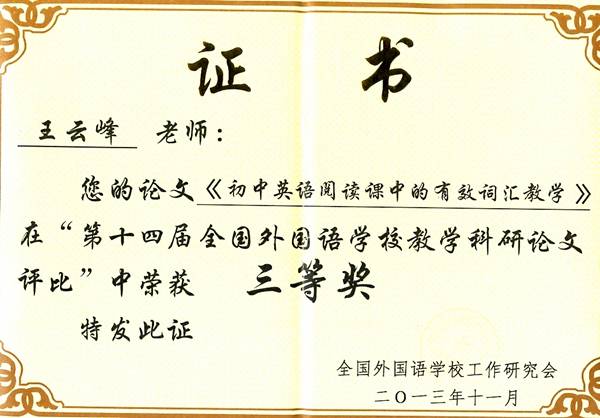 证书
王云峰 老师：
您的论文《初中英语阅读课中的有效词汇教学》
在“第十四届全国外国语学校教学科研论文
评比”中荣获 三等奖
特发此证
全国外国语学校工作研究会
二〇一三年十一月